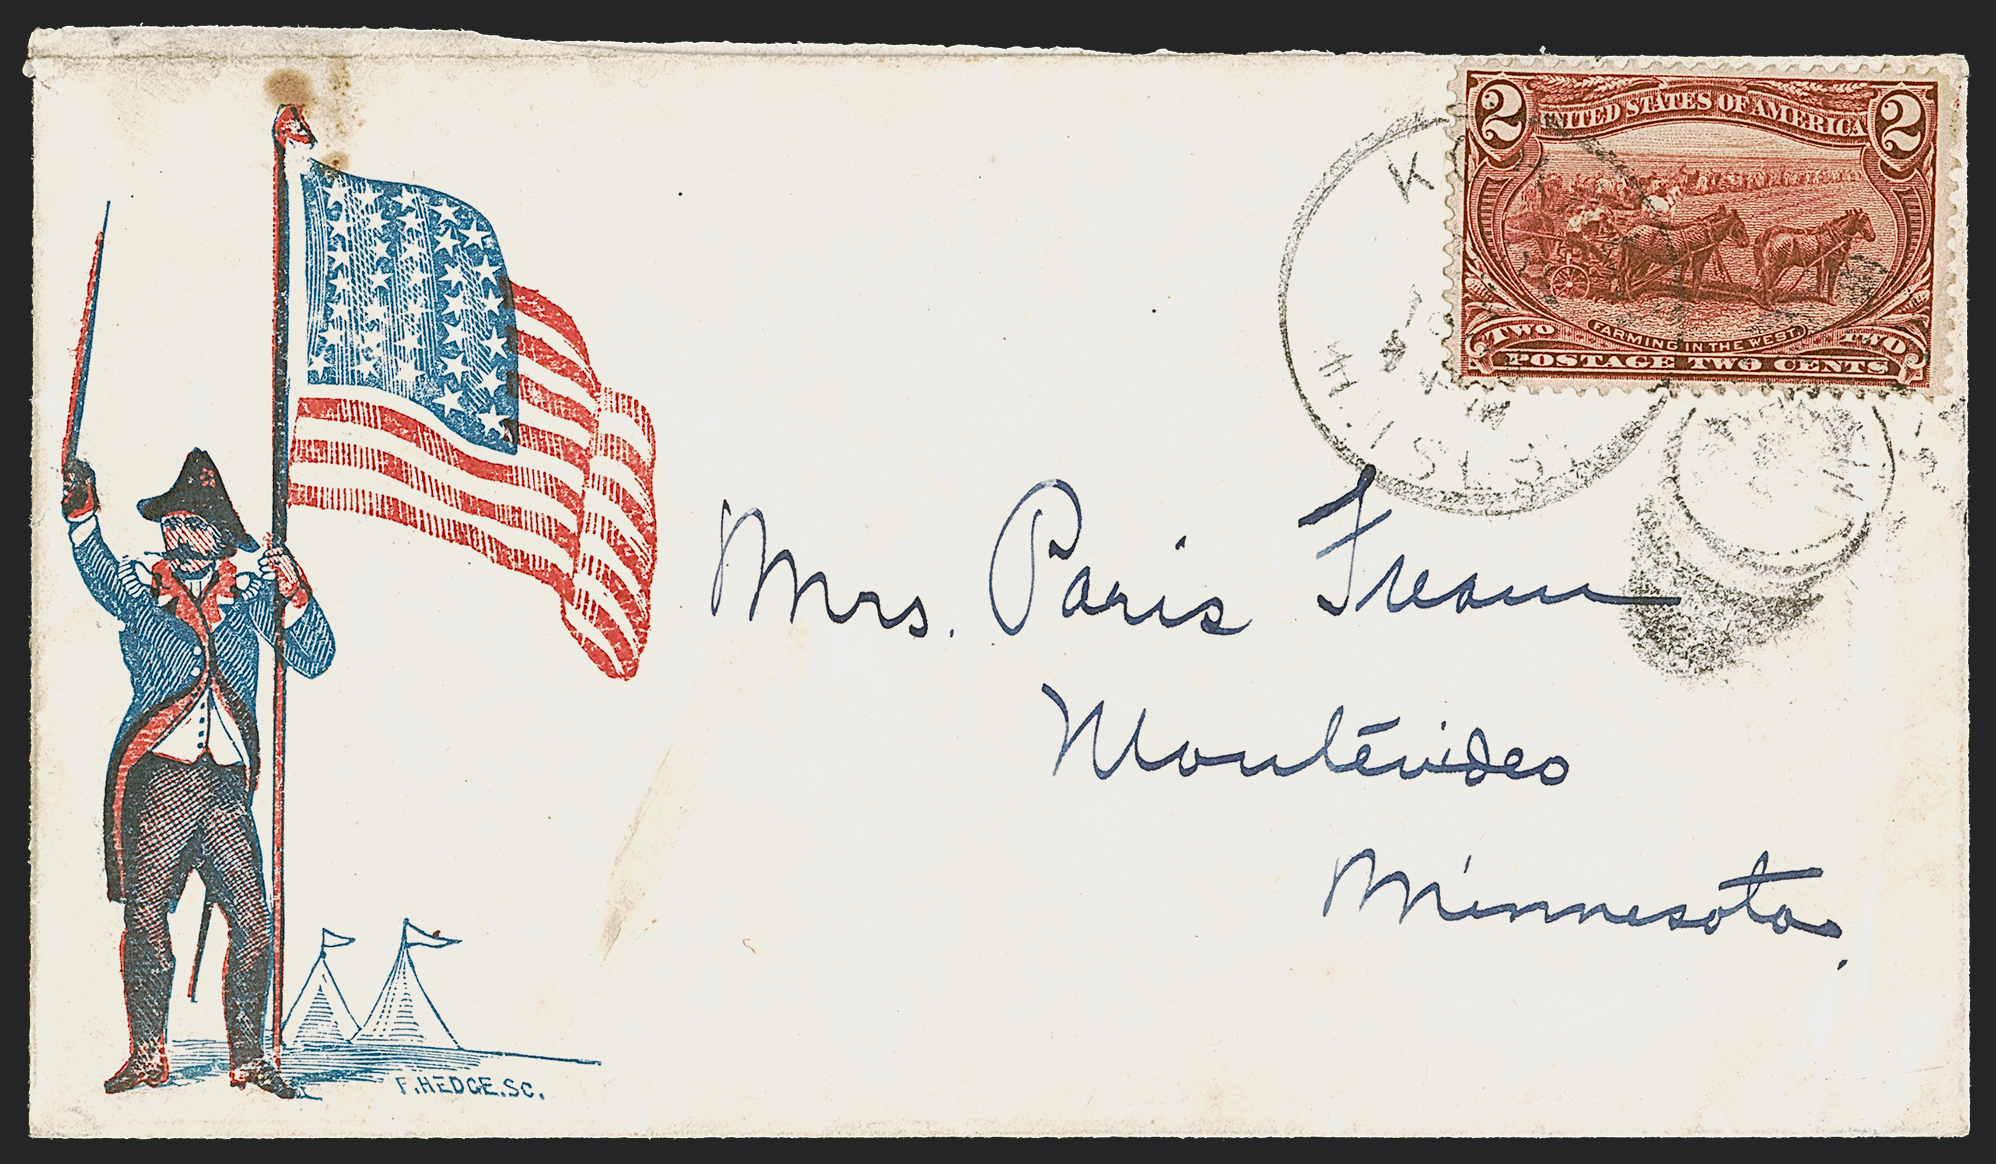 2 UNITED STATES OF AMERICA 2
TWO FARMING IN THE WEST. TWO
POSTAGE TWO CENTS
Mrs. Paris Fream
Montevideo
Minnesota.
F. HEDGE. SC.